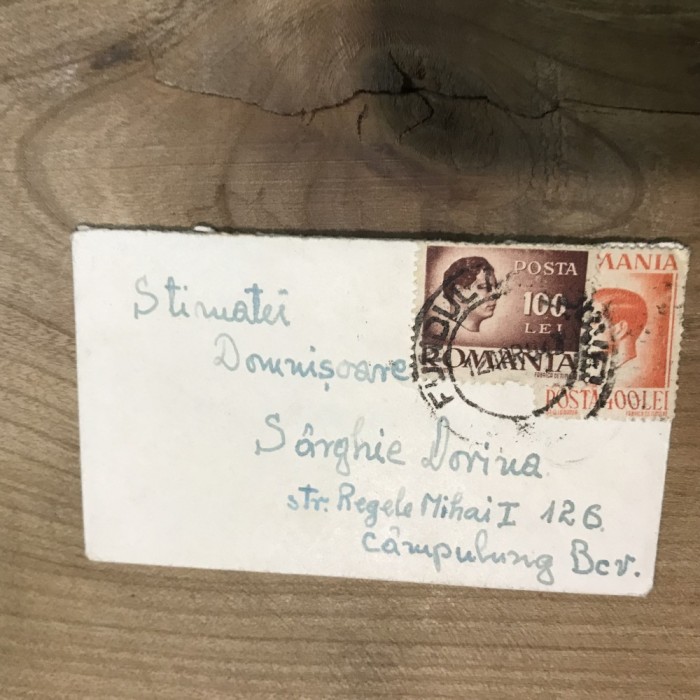 Stimatei
Domnișoare
Sârghie Dorina
str. Regele Mihai I 126.
Câmpulung Bcv.
POSTA
100
LEI
ROMANIA
MANIA
POSTA 400 LEI